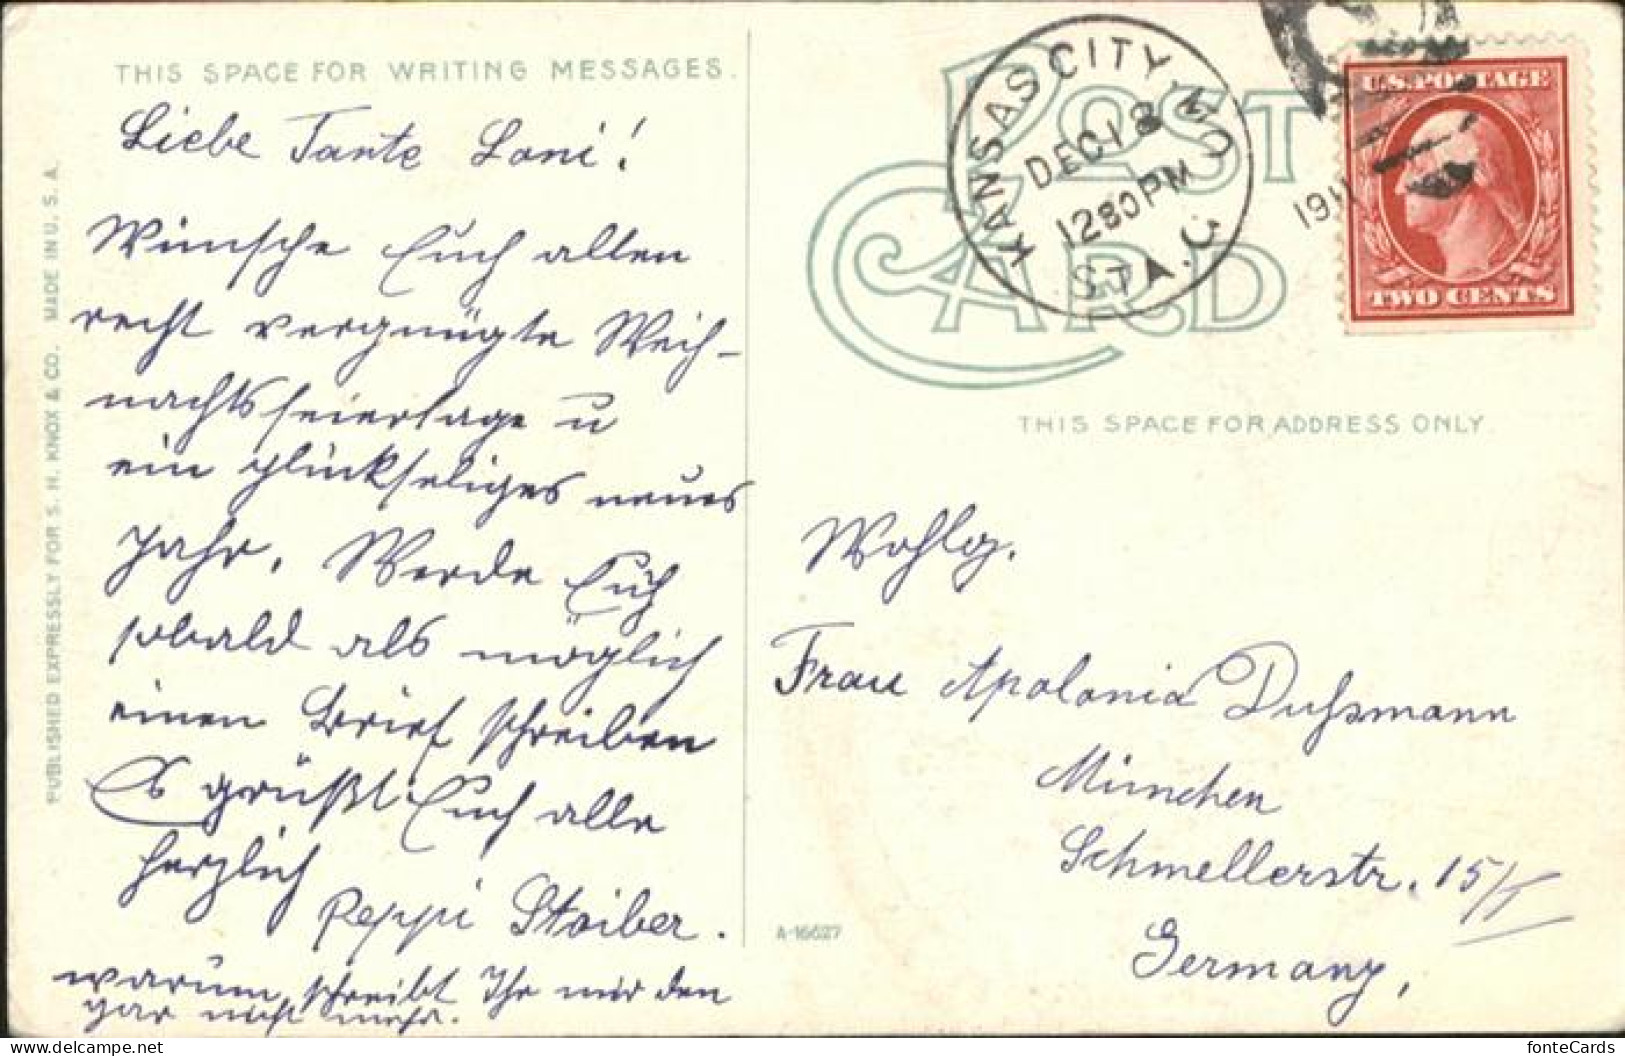 THIS SPACE FOR WRITING MESSAGES.
Liebe Tante Loni!
Wünsche Euch allen
recht vergnügte Weih-
nachtsfeiertage u
ein glückseliges neues
Jahr. Werde Euch
sobald als möglich
einen Brief schreiben
Es grüßt Euch alle
herzlich
Peppi Stoiber.
warum schreibt Ihr mir den
gar nicht mehr.
PUBLISHED EXPRESSLY FOR S. H. KNOX & CO. MADE IN U. S. A.
POST CARD
KANSAS CITY, MO.
DEC 18
1230 PM
STA. C.
1911
U.S. POSTAGE
TWO CENTS
THIS SPACE FOR ADDRESS ONLY.
Wohlg.
Frau Apolonia Dußmann
München
Schmellerstr. 15/I
Germany,
A-16627
fonteCards